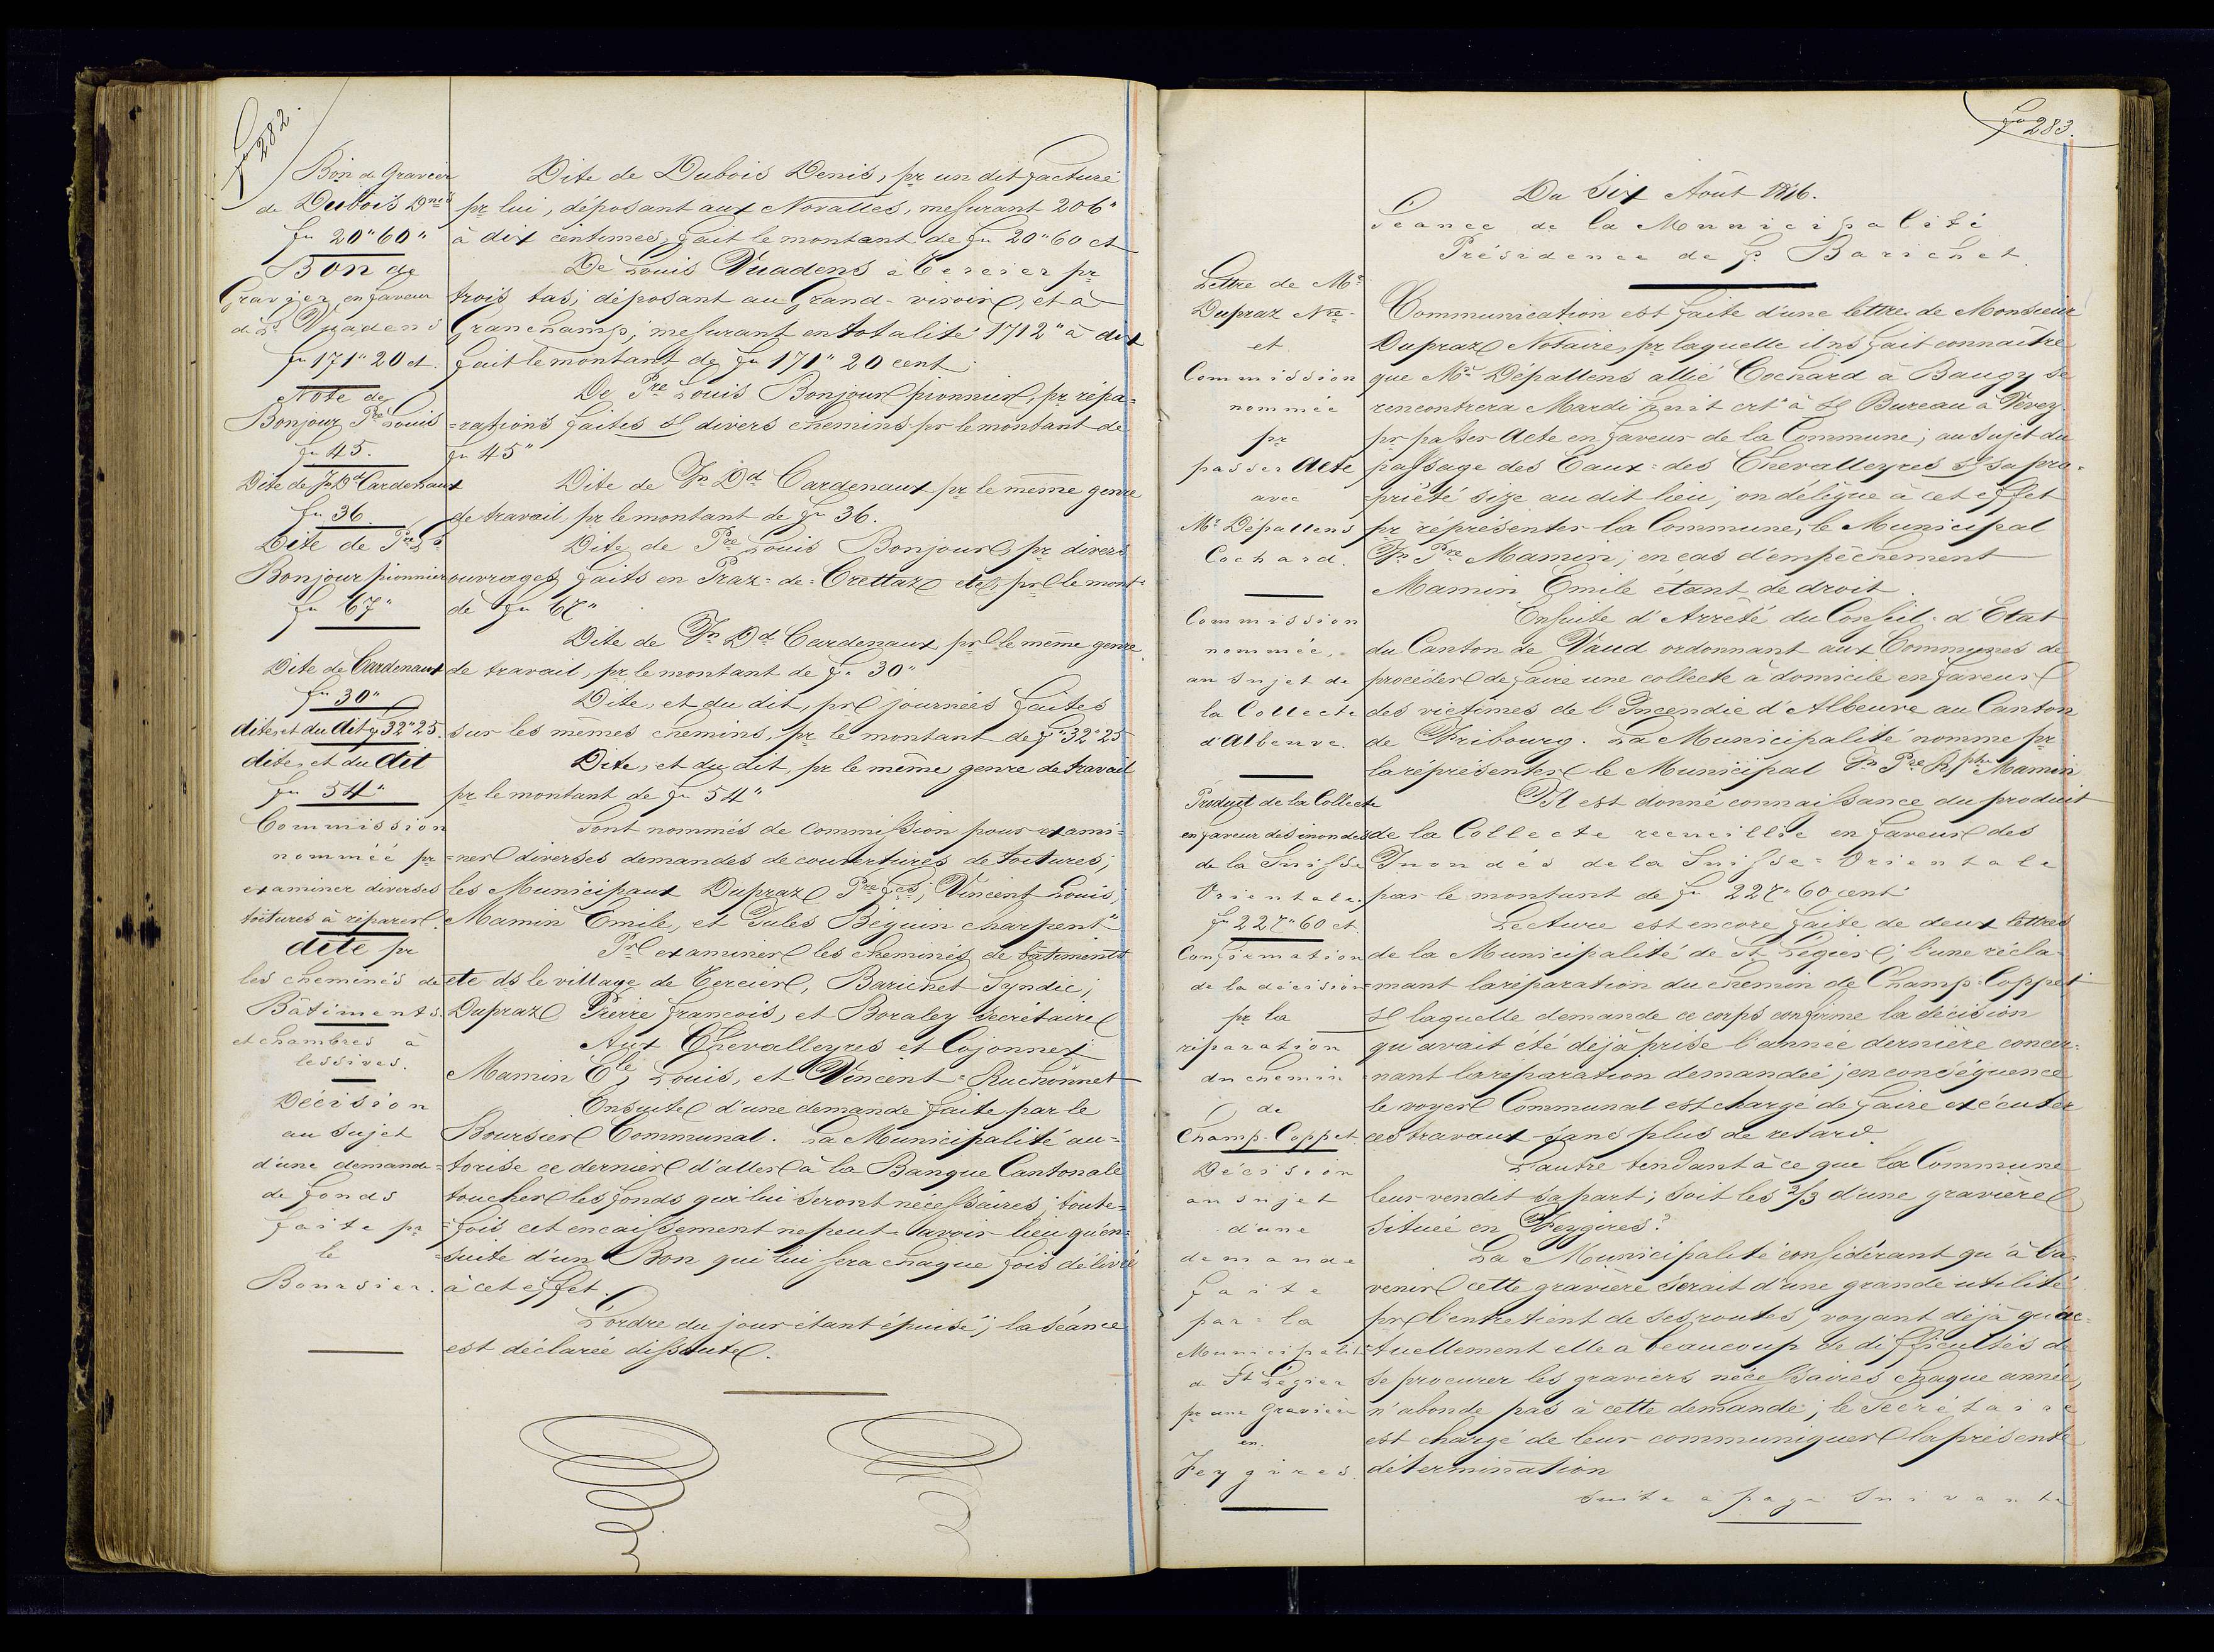 fo 282.
Bon de Gravier
de Dubois Dnis
fr 20"60"
Bon de
Gravier en faveur
de Ls Vuadens
fr 171"20 ct.
Note de
Bonjour Pre Louis
fr 45.
Dite de Fn Dd Cardenaux
fr 36.
Dite de Pre Ls
Bonjour pionnier
fr 67"
Dite de Cardenaux
fr 30"
dite, et du dit fr 32"25.
dite, et du dit
fr 54"
Commission
nommée pr
examiner diverses
toitures à réparer.
dite pr
les cheminés de
Bâtiments.
et chambres à
lessives.
Décision
au sujet
d'une demande
de fonds
faite pr
le
Boursier.
Dite de Dubois Denis, pr un dit facturé
pr lui, déposant aux Novalles, mesurant 206"
à dix centimes, fait le montant de fr 20"60 ct
De Louis Vuadens à Cercier pr
trois tas; déposant au Grand-vivoire, et à
Granchamp; mesurant en totalité 1712" à dix
fait le montant de fr 171" 20 cent.
De Pre Louis Bonjour pionnier, pr répa=
=rations faites sr divers chemins pr le montant de
fr 45"
Dite de Fn Dd Cardenaux pr le même genre
de travail, pr le montant de fr 36.
Dite de Pre Louis Bonjour, pr divers
ouvrages faits en Praz=de=Crettaz etc, pr le mont=
de fr 67"
Dite de Fn Dd Cardenaux pr le même genre
de travail, pr le montant de fr 30"
Dite, et du dit, pr journées faites
sur les mêmes chemins, pr le montant de fr 32"25
Dite, et du dit, pr le même genre de travail
pr le montant de fr 54"
Sont nommés de commission pour exami=
=ner diverses demandes de couvertures de toitures;
les Municipaux Dupraz Pre Fçs; Vincent Louis;
Mamin Emile, et Jules Béguin charpent"
Pr examiner les cheminés de bâtiments
etc ds le village de Cercier, Barichet Syndic;
Dupraz Pierre François, et Boraley Secrétaire
Aux Chevalleyres et Cojonnex
Mamin Ele, Louis, et Vincent=Ruchonnet
Ensuite d'une demande faite par le
Boursier Communal. La Municipalité au=
=torise ce dernier d'aller à la Banque Cantonale
toucher les fonds qui lui seront nécessaires; toute=
=fois cet encaissement ne peut avoir lieu qu'en=
=suite d'un Bon qui lui sera chaque fois délivré
à cet effet.
L'ordre du jour étant épuisé; la séance
est déclarée dissoute.
fo 283.
Du Six Août 1876.
Séance de la Municipalité
Présidence de fs Barichet
Lettre de Mr
Dupraz Nre
et
Commission
nommée
pr
passer Acte
avec
Mr Dépallens
Cochard.
Commission
nommée,
au sujet de
la Collecte
d'Albeuve.
Produit de la Collecte
en faveur des inondés
de la Suisse
Orientale.
fr 227"60 ct.
Confirmation
de la décision
pr la
réparation
du chemin
de
Champ-Coppet
Décision
au sujet
d'une
demande
faite
par=la
Municipalité
de St Légier
pr une Gravière
en.
Feygires.
Communication est faite d'une lettre de Monsieur
Dupraz Notaire, pr laquelle il ns fait connaître
que Mr Dépallens allié Cochard à Baugy se
rencontrera Mardi huit crt à sr Bureau à Vevey
pr passer Acte en faveur de la Commune; au sujet du
passage des Eaux=des Chevalleyres sr sa pro=
=priété size au dit lieu; on délègue à cet effet
pr réprésenter la Commune, le Municipal
Fn Pre Mamin; en cas d'empêchement
Mamin Emile étant de droit.
Ensuite d'Arrêté du Conseil=d'Etat
du Canton de Vaud ordonnant aux Communes de
procéder de faire une collecte à domicile en faveur
des victimes de l'Incendie d'Albeuve au Canton
de Fribourg. La Municipalité nomme pr
la réprésenter le Municipal Fn Pre Mamin
Il est donné connaissance du produit
de la Collecte recueillie en faveur des
Inondés de la Suisse=Orientale
par le montant de fr 227"60 cent
Lecture est encore faite de deux lettres
de la Municipalité de St Légier; l'une récla=
=mant la réparation du chemin de Champ-Coppet
sr laquelle demande ce corps confirme la décision
qu'avait été déjà prise l'année dernière concer=
=nant la réparation demandée; en conséquence
le voyer Communal est chargé de faire exécuter
ces travaux sans plus de retard.
L'autre tendant à ce que la Commune
leur vendit sa part; soit les 2/3 d'une gravière
située en Feygires?
La Municipalité considérant qu'à l'a=
venir cette gravière serait d'une grande utilité
pr l'entretient de ses routes; voyant déjà qu'ac=
=tuellement elle a beaucoup de difficultés de
se procurer les graviers nécessaires chaque année,
n'abonde pas à cette demande; le Secrétaire
est chargé de leur communiquer la présente
détermination
Suite à page Suivante